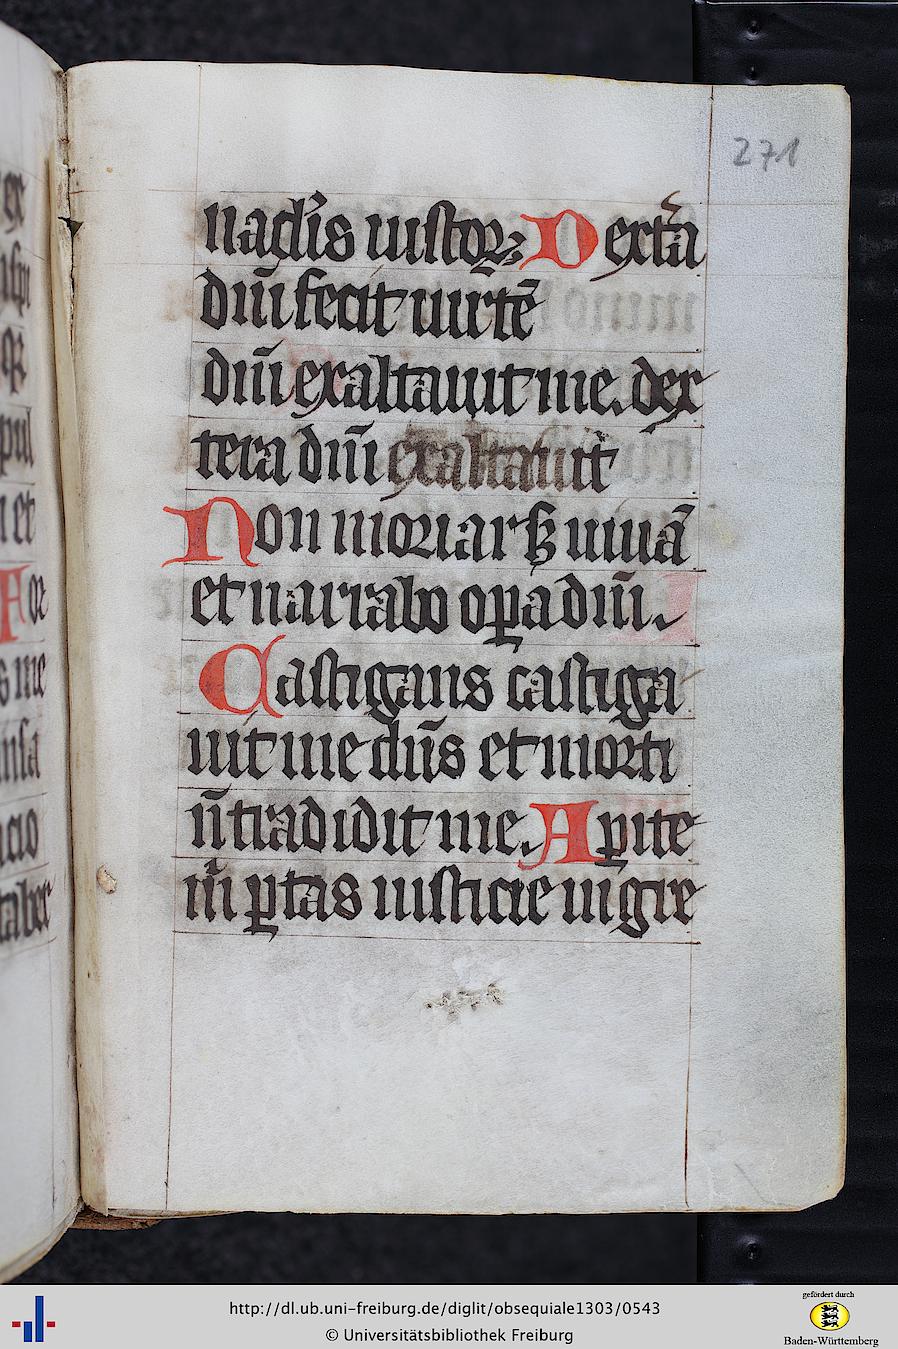 271
nacl̄is iustoꝝ Dext̄a
dn̄i fecit uirtē
dn̄i exaltauit me. dex
tera dn̄i exaltauit
Non moriar sꝫ uiuā
et narrabo oꝑa dn̄i.
Castigans castiga
uit me dn̄s et morti
n̄ tradidit me. Aꝑite
m̄ ꝑtas iusticie ingre
http://dl.ub.uni-freiburg.de/diglit/obsequiale1303/0543
© Universitätsbibliothek Freiburg
gefördert durch
Baden-Württemberg